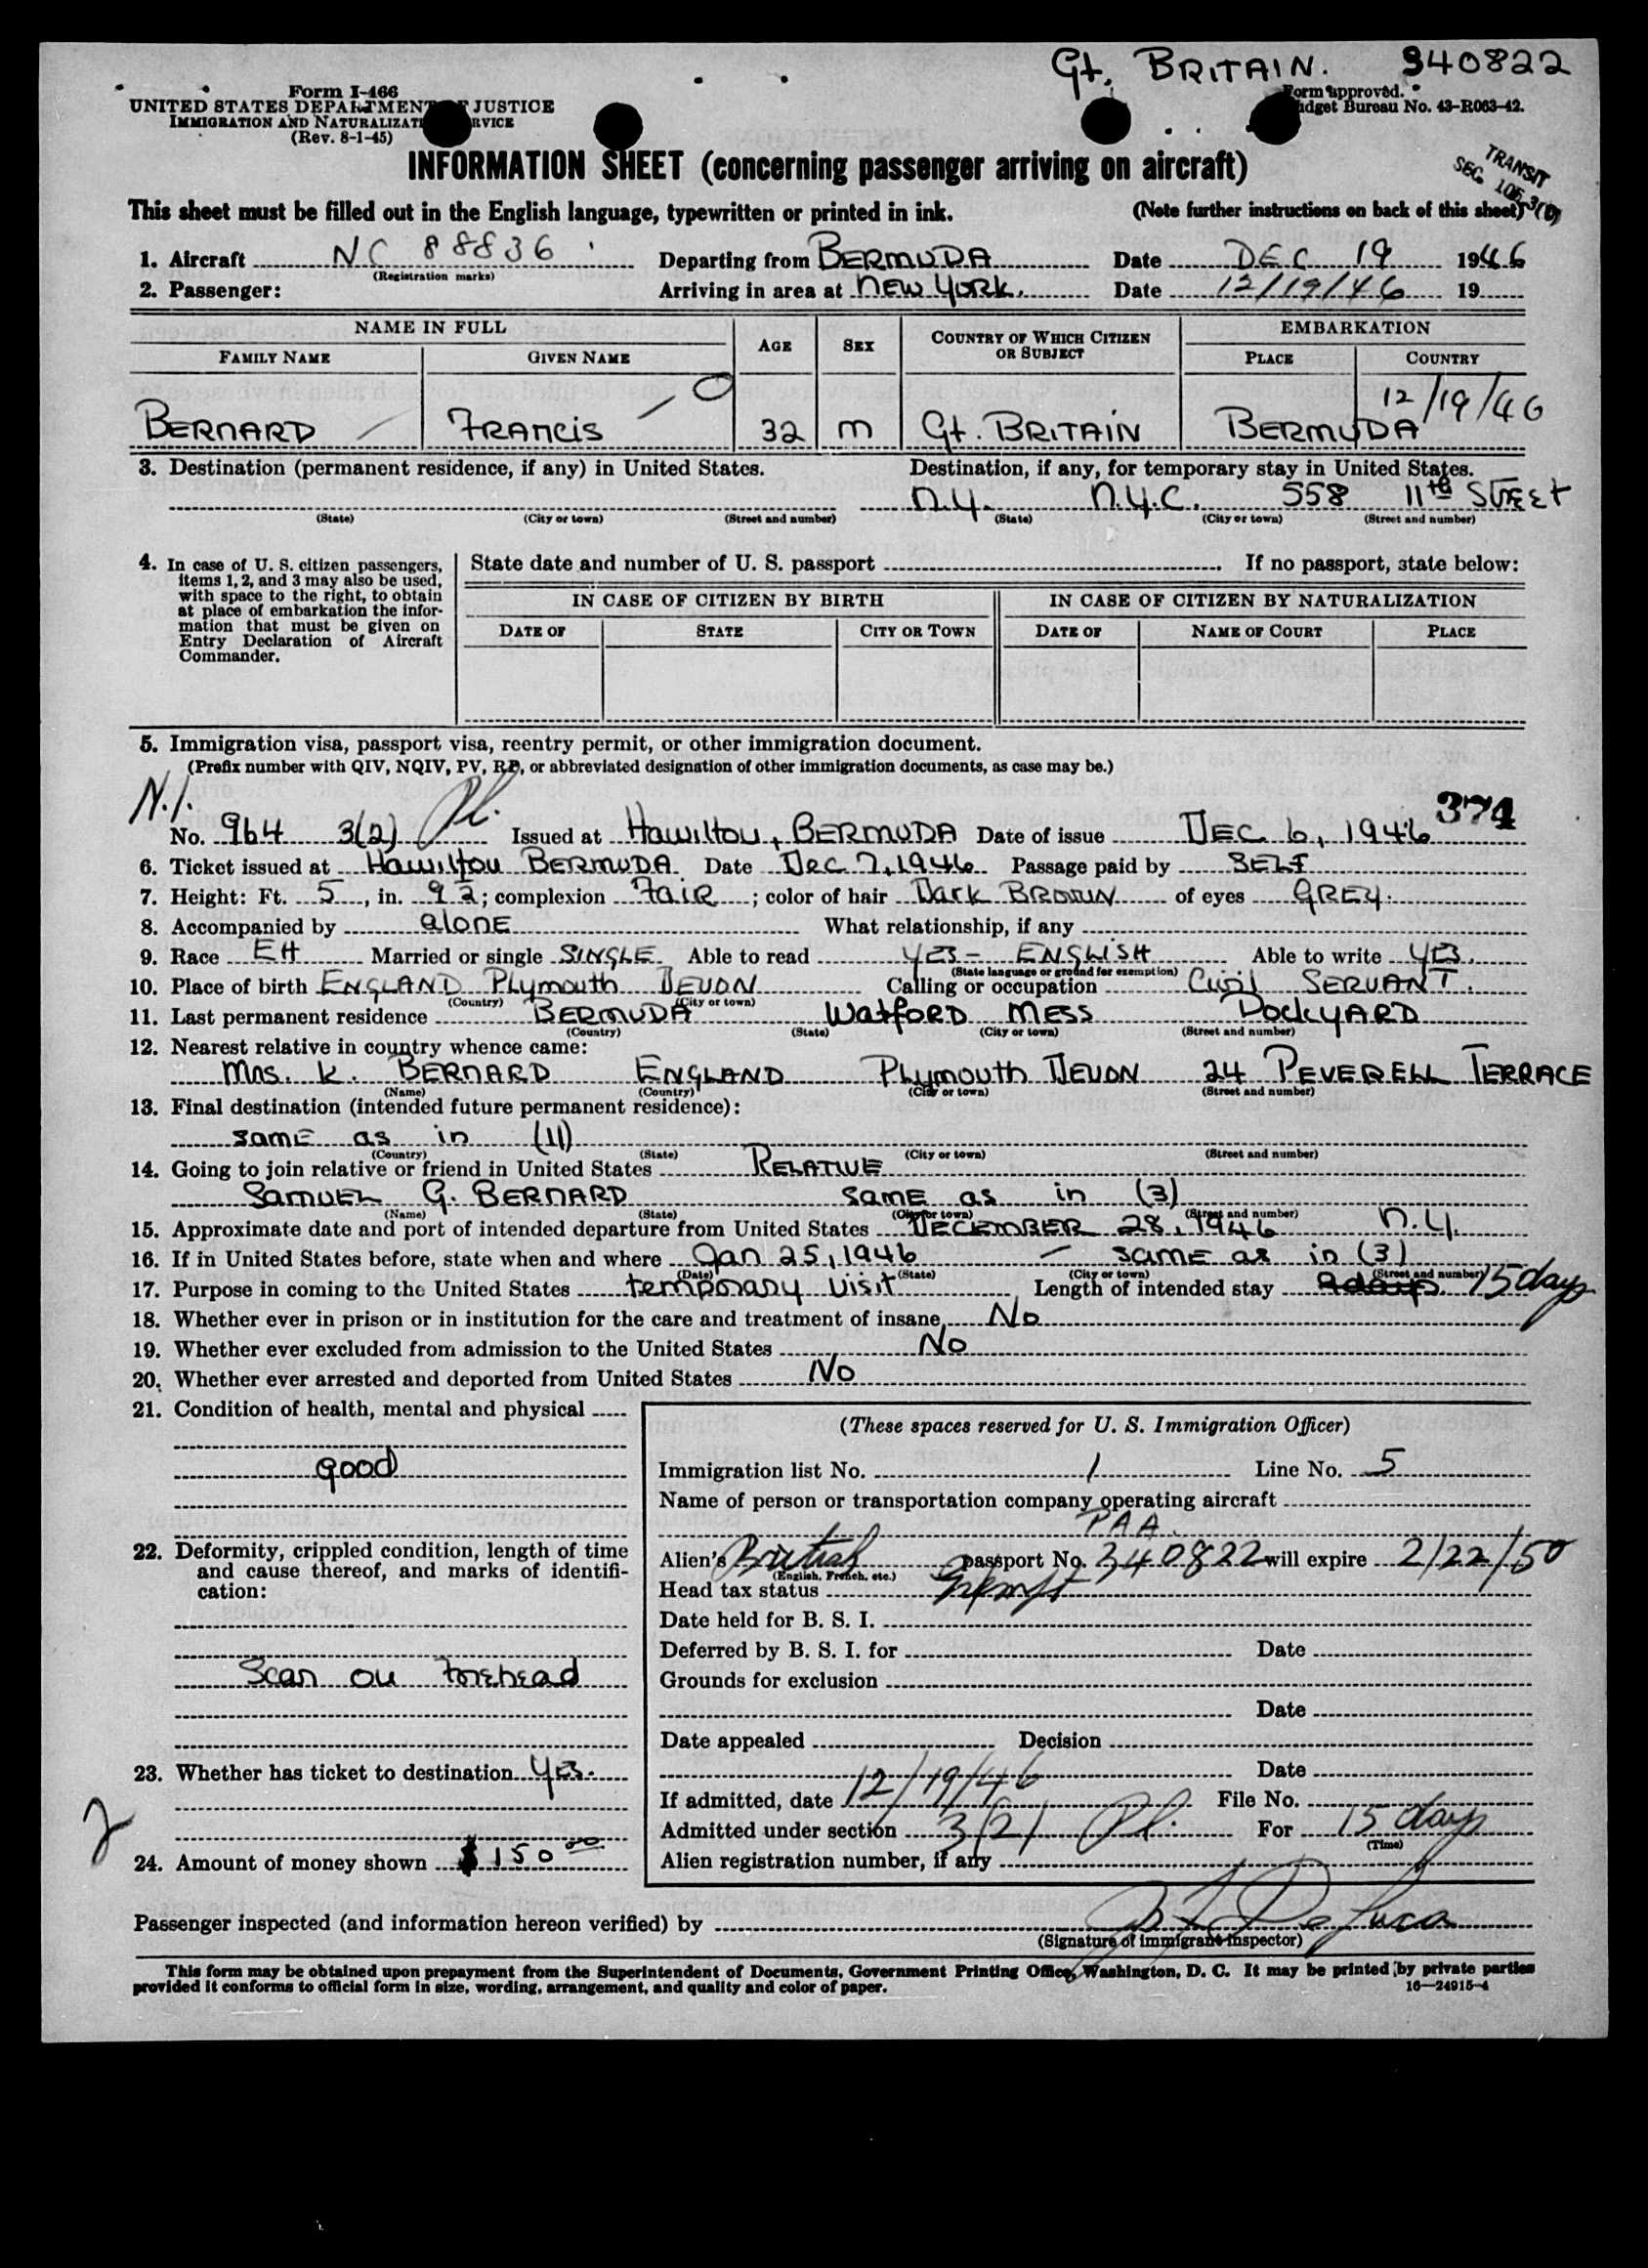 Gt. BRITAIN. 340822
Form I-466
UNITED STATES DEPARTMENT JUSTICE
IMMIGRATION AND NATURALIZATI RVICE
(Rev. 8-1-45)
Form approved.
dget Bureau No. 43-R063-42.
INFORMATION SHEET (concerning passenger arriving on aircraft)
TRANSIT
SEC. 105.3(
This sheet must be filled out in the English language, typewritten or printed in ink. (Note further instructions on back of this sheet)
1. Aircraft NC 88836 Departing from BERMUDA Date DEC 19 1946
(Registration marks)
2. Passenger: Arriving in area at NEW YORK. Date 12/19/46 19
NAME IN FULL AGE SEX COUNTRY OF WHICH CITIZEN OR SUBJECT EMBARKATION
FAMILY NAME GIVEN NAME PLACE COUNTRY
12/19/46
BERNARD FRANCIS 32 M Gt. BRITAIN BERMUDA
3. Destination (permanent residence, if any) in United States. Destination, if any, for temporary stay in United States.
N.Y. N.Y.C. 558 11th STREET
(State) (City or town) (Street and number) (State) (City or town) (Street and number)
4. In case of U. S. citizen passengers, items 1, 2, and 3 may also be used, with space to the right, to obtain at place of embarkation the information that must be given on Entry Declaration of Aircraft Commander.
State date and number of U. S. passport If no passport, state below:
IN CASE OF CITIZEN BY BIRTH IN CASE OF CITIZEN BY NATURALIZATION
DATE OF STATE CITY OR TOWN DATE OF NAME OF COURT PLACE
5. Immigration visa, passport visa, reentry permit, or other immigration document.
(Prefix number with QIV, NQIV, PV, RP, or abbreviated designation of other immigration documents, as case may be.)
N.I. 374
No. 964 3(2) Issued at Hamilton, BERMUDA Date of issue DEC 6, 1946
6. Ticket issued at Hamilton BERMUDA Date Dec 7, 1946 Passage paid by SELF
7. Height: Ft. 5, in. 9½; complexion FAIR; color of hair DARK BROWN of eyes GREY.
8. Accompanied by alone What relationship, if any
9. Race EH Married or single SINGLE Able to read YES - ENGLISH Able to write YES.
(State language or ground for exemption)
10. Place of birth ENGLAND Plymouth DEVON Calling or occupation Civil SERVANT.
(Country) (City or town)
11. Last permanent residence BERMUDA Watford MESS DockYARD
(Country) (State) (City or town) (Street and number)
12. Nearest relative in country whence came:
Mrs. K. BERNARD ENGLAND Plymouth DEVON 24 PEVERELL TERRACE
(Name) (Country) (City or town) (Street and number)
13. Final destination (intended future permanent residence):
same as in (11)
(Country) (State) (City or town) (Street and number)
14. Going to join relative or friend in United States RELATIVE
SAMUEL G. BERNARD same as in (3)
(Name) (State) (City or town) (Street and number)
15. Approximate date and port of intended departure from United States DECEMBER 28, 1946 N.Y.
16. If in United States before, state when and where Jan 25, 1946 - same as in (3)
(Date) (State) (City or town) (Street and number)
17. Purpose in coming to the United States temporary visit Length of intended stay 15 days
18. Whether ever in prison or in institution for the care and treatment of insane, No
19. Whether ever excluded from admission to the United States No
20. Whether ever arrested and deported from United States No
21. Condition of health, mental and physical
good
22. Deformity, crippled condition, length of time and cause thereof, and marks of identification:
Scar on forehead
23. Whether has ticket to destination YES.
2
24. Amount of money shown $150.00
(These spaces reserved for U. S. Immigration Officer)
Immigration list No. 1 Line No. 5
Name of person or transportation company operating aircraft
PAA.
Alien's British passport No. 340822 will expire 2/22/50
(English, French, etc.)
Head tax status Exempt
Date held for B. S. I.
Deferred by B. S. I. for Date
Grounds for exclusion
Date
Date appealed Decision
Date
If admitted, date 12/19/46 File No.
Admitted under section 3(2) For 15 days
(Time)
Alien registration number, if any
Passenger inspected (and information hereon verified) by
(Signature of immigrant inspector)
This form may be obtained upon prepayment from the Superintendent of Documents, Government Printing Office, Washington, D. C. It may be printed by private parties
provided it conforms to official form in size, wording, arrangement, and quality and color of paper. 16—24915-4